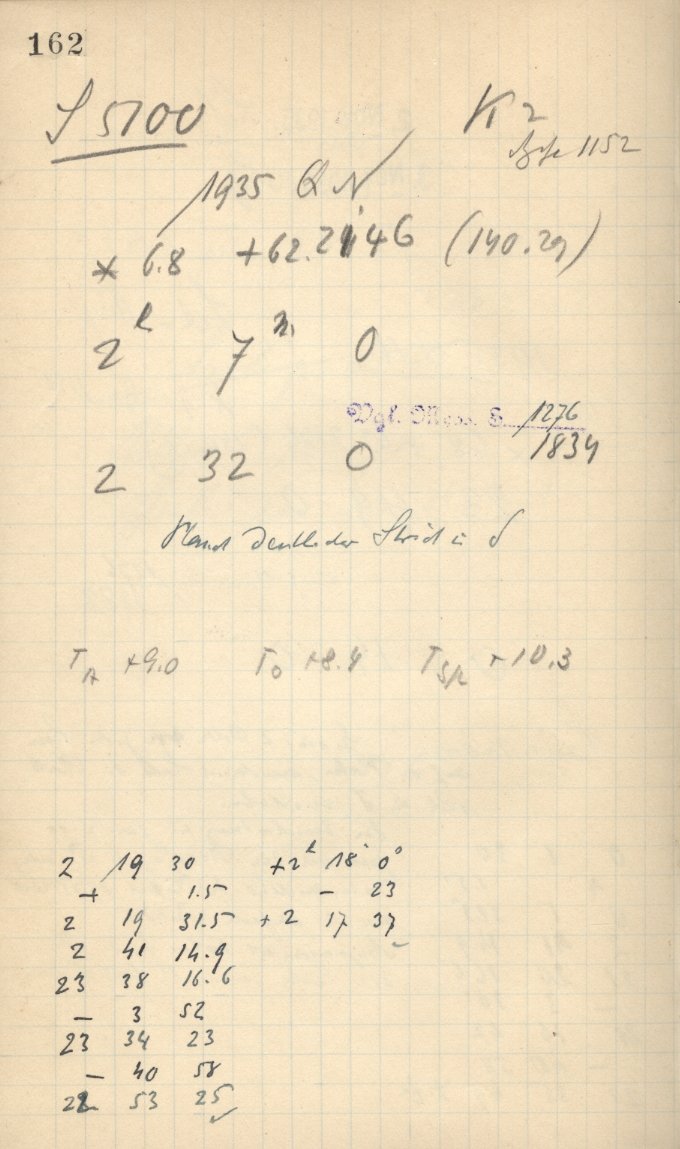 162
S 5700 K 2
1152
1935 QN
* 6.8 +62.2146 (140.29)
2 h 7 m 0
Vgl. Mess. S. 1276
1834
2 32 0
Strich in δ
T A +9.0 T O +8.4 T Sp +10.3
2 19 30 +2 h 18 ' 0"
+ 1.5 - 23
2 19 31.5 +2 17 37
2 41 14.9
23 38 16.6
- 3 52
23 34 23
- 40 58
22 53 25